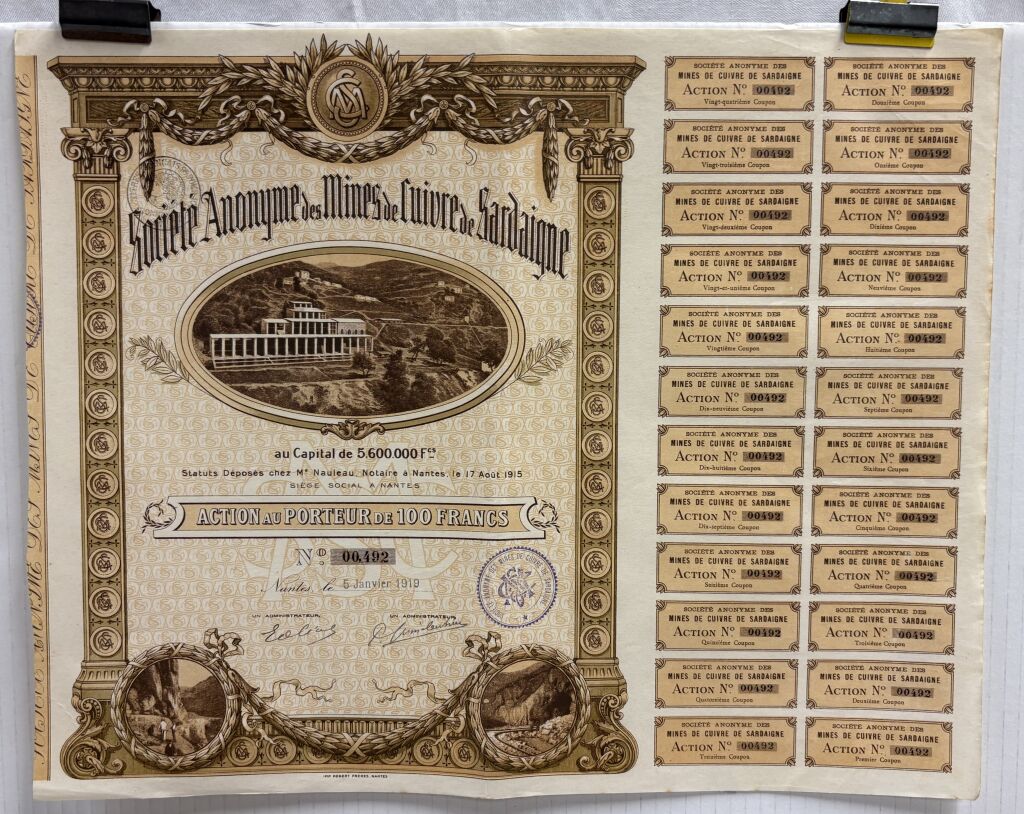 Société Anonyme des Mines de Cuivre de Sardaigne
au Capital de 5.600.000 F.cs
Statuts Déposés chez Me Nauleau, Notaire à Nantes, le 17 Août 1915
SIÈGE SOCIAL A NANTES
ACTION AU PORTEUR DE 100 FRANCS
No. 00,492
Nantes, le 5 Janvier 1919
UN ADMINISTRATEUR, UN ADMINISTRATEUR,
IMP. ROBERT FRÈRES, NANTES
SOCIÉTÉ ANONYME DES
MINES DE CUIVRE DE SARDAIGNE
ACTION No. 00492
Vingt-quatrième Coupon
SOCIÉTÉ ANONYME DES
MINES DE CUIVRE DE SARDAIGNE
ACTION No. 00492
Douzième Coupon
SOCIÉTÉ ANONYME DES
MINES DE CUIVRE DE SARDAIGNE
ACTION No. 00492
Vingt-troisième Coupon
SOCIÉTÉ ANONYME DES
MINES DE CUIVRE DE SARDAIGNE
ACTION No. 00492
Onzième Coupon
SOCIÉTÉ ANONYME DES
MINES DE CUIVRE DE SARDAIGNE
ACTION No. 00492
Vingt-deuxième Coupon
SOCIÉTÉ ANONYME DES
MINES DE CUIVRE DE SARDAIGNE
ACTION No. 00492
Dixième Coupon
SOCIÉTÉ ANONYME DES
MINES DE CUIVRE DE SARDAIGNE
ACTION No. 00492
Vingt-et-unième Coupon
SOCIÉTÉ ANONYME DES
MINES DE CUIVRE DE SARDAIGNE
ACTION No. 00492
Neuvième Coupon
SOCIÉTÉ ANONYME DES
MINES DE CUIVRE DE SARDAIGNE
ACTION No. 00492
Vingtième Coupon
SOCIÉTÉ ANONYME DES
MINES DE CUIVRE DE SARDAIGNE
ACTION No. 00492
Huitième Coupon
SOCIÉTÉ ANONYME DES
MINES DE CUIVRE DE SARDAIGNE
ACTION No. 00492
Dix-neuvième Coupon
SOCIÉTÉ ANONYME DES
MINES DE CUIVRE DE SARDAIGNE
ACTION No. 00492
Septième Coupon
SOCIÉTÉ ANONYME DES
MINES DE CUIVRE DE SARDAIGNE
ACTION No. 00492
Dix-huitième Coupon
SOCIÉTÉ ANONYME DES
MINES DE CUIVRE DE SARDAIGNE
ACTION No. 00492
Sixième Coupon
SOCIÉTÉ ANONYME DES
MINES DE CUIVRE DE SARDAIGNE
ACTION No. 00492
Dix-septième Coupon
SOCIÉTÉ ANONYME DES
MINES DE CUIVRE DE SARDAIGNE
ACTION No. 00492
Cinquième Coupon
SOCIÉTÉ ANONYME DES
MINES DE CUIVRE DE SARDAIGNE
ACTION No. 00492
Seizième Coupon
SOCIÉTÉ ANONYME DES
MINES DE CUIVRE DE SARDAIGNE
ACTION No. 00492
Quatrième Coupon
SOCIÉTÉ ANONYME DES
MINES DE CUIVRE DE SARDAIGNE
ACTION No. 00492
Quinzième Coupon
SOCIÉTÉ ANONYME DES
MINES DE CUIVRE DE SARDAIGNE
ACTION No. 00492
Troisième Coupon
SOCIÉTÉ ANONYME DES
MINES DE CUIVRE DE SARDAIGNE
ACTION No. 00492
Quatorzième Coupon
SOCIÉTÉ ANONYME DES
MINES DE CUIVRE DE SARDAIGNE
ACTION No. 00492
Deuxième Coupon
SOCIÉTÉ ANONYME DES
MINES DE CUIVRE DE SARDAIGNE
ACTION No. 00492
Treizième Coupon
SOCIÉTÉ ANONYME DES
MINES DE CUIVRE DE SARDAIGNE
ACTION No. 00492
Premier Coupon